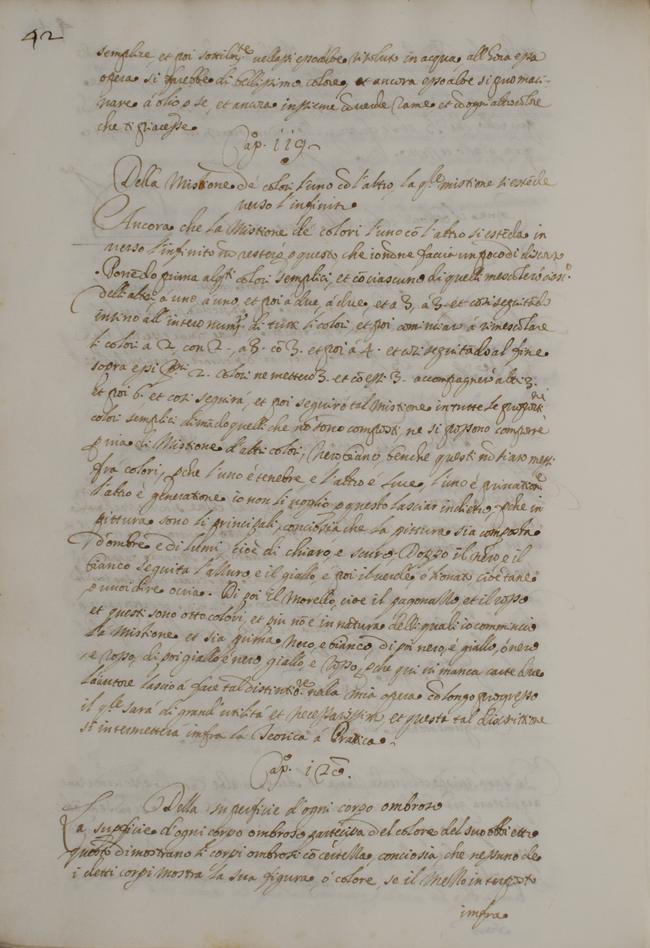 42
semplice et poi sottilmte velassi esso aloe risoluto in acqua all'hora essa
opera si farebbe di bellissimo colore, et ancora esso aloe si può maci-
nare à olio p se, et ancora insieme cō verde rame, et cō ogni altro colore
che ti piacesse.
Cap.º 119.
Della Mistione dé colori l'uno cō l'altro, la qle mistione si estēde
verso l'infinito
Ancora che la Mistione dé colori l'uno cō l'altro si estēda in
verso l'infinito nō resterò p questo che io nō ne faccia un poco di discorso
Ponēdo prima alqti colori semplici, et cō ciascuno di quelli mescolerò
dell'altri à uno, à uno, et poi à due, à due et à 3, à 3 et così seguitādo
insino all'intero numº di tutti li colori, et poi cominciarò à rimescolare
li colori a 2, con 2, a 3 cō 3. et poi à 4. et così seguitādo al fine
sopra essi pri 2. colori ne metterò 3. et cō essi 3. accompagnerò altri 3.
et poi 6, et così seguirà, et poi seguirò tal Mistione in tutte le proportni
colori semplici dimādo quelli che nō sono composti, ne si possono comporre
p via di Mistione d'alti colori, Nero, biāco, benche questi nō siano messi
frà colori, pche l'uno é tenebre e l'altro e luce, l'uno é privatione
l'altro è generatione io non li voglio p questo lasciar indietro, pche in
pittura sono li principali, conciosia che la pittura sia composta
d'ombre e di lumi, cioé di chiaro, e scuro, Doppo il nero e il
bianco seguita l'assuro, e il giallo, è poi il verde ò lionato cioé tane
ò vuoi dire ocria. Di poi il Morello, cioe il pagonasso, et il rosso
et questi sono otto colori, et piu nō é in natura delli quali io comincio
la Mistione et sia prima nero, e bianco, di poi nero, e giallo, ò nero
, e rosso, di poi giallo e nero, giallo, e rosso, pche qui mi manca carta due
l'autore lascio à fare tal distintione nella mia opera cō longo progresso
il qle sarà di grand'utilità et necessarissimo, et questa tal discrittione
si intermetterà imfra la Teorica e Pratica.
Cap.º 120.
Della superficie d'ogni corpo ombroso
La supficie d'ogni corpo ombroso partecipa del colore del suo obbietto
questo dimostrano li corpi ombrosi cō certezza, conciosia, che nessuno de
i detti corpi mostra la sua figura, ò colore, se il mezzo interposto
imfra